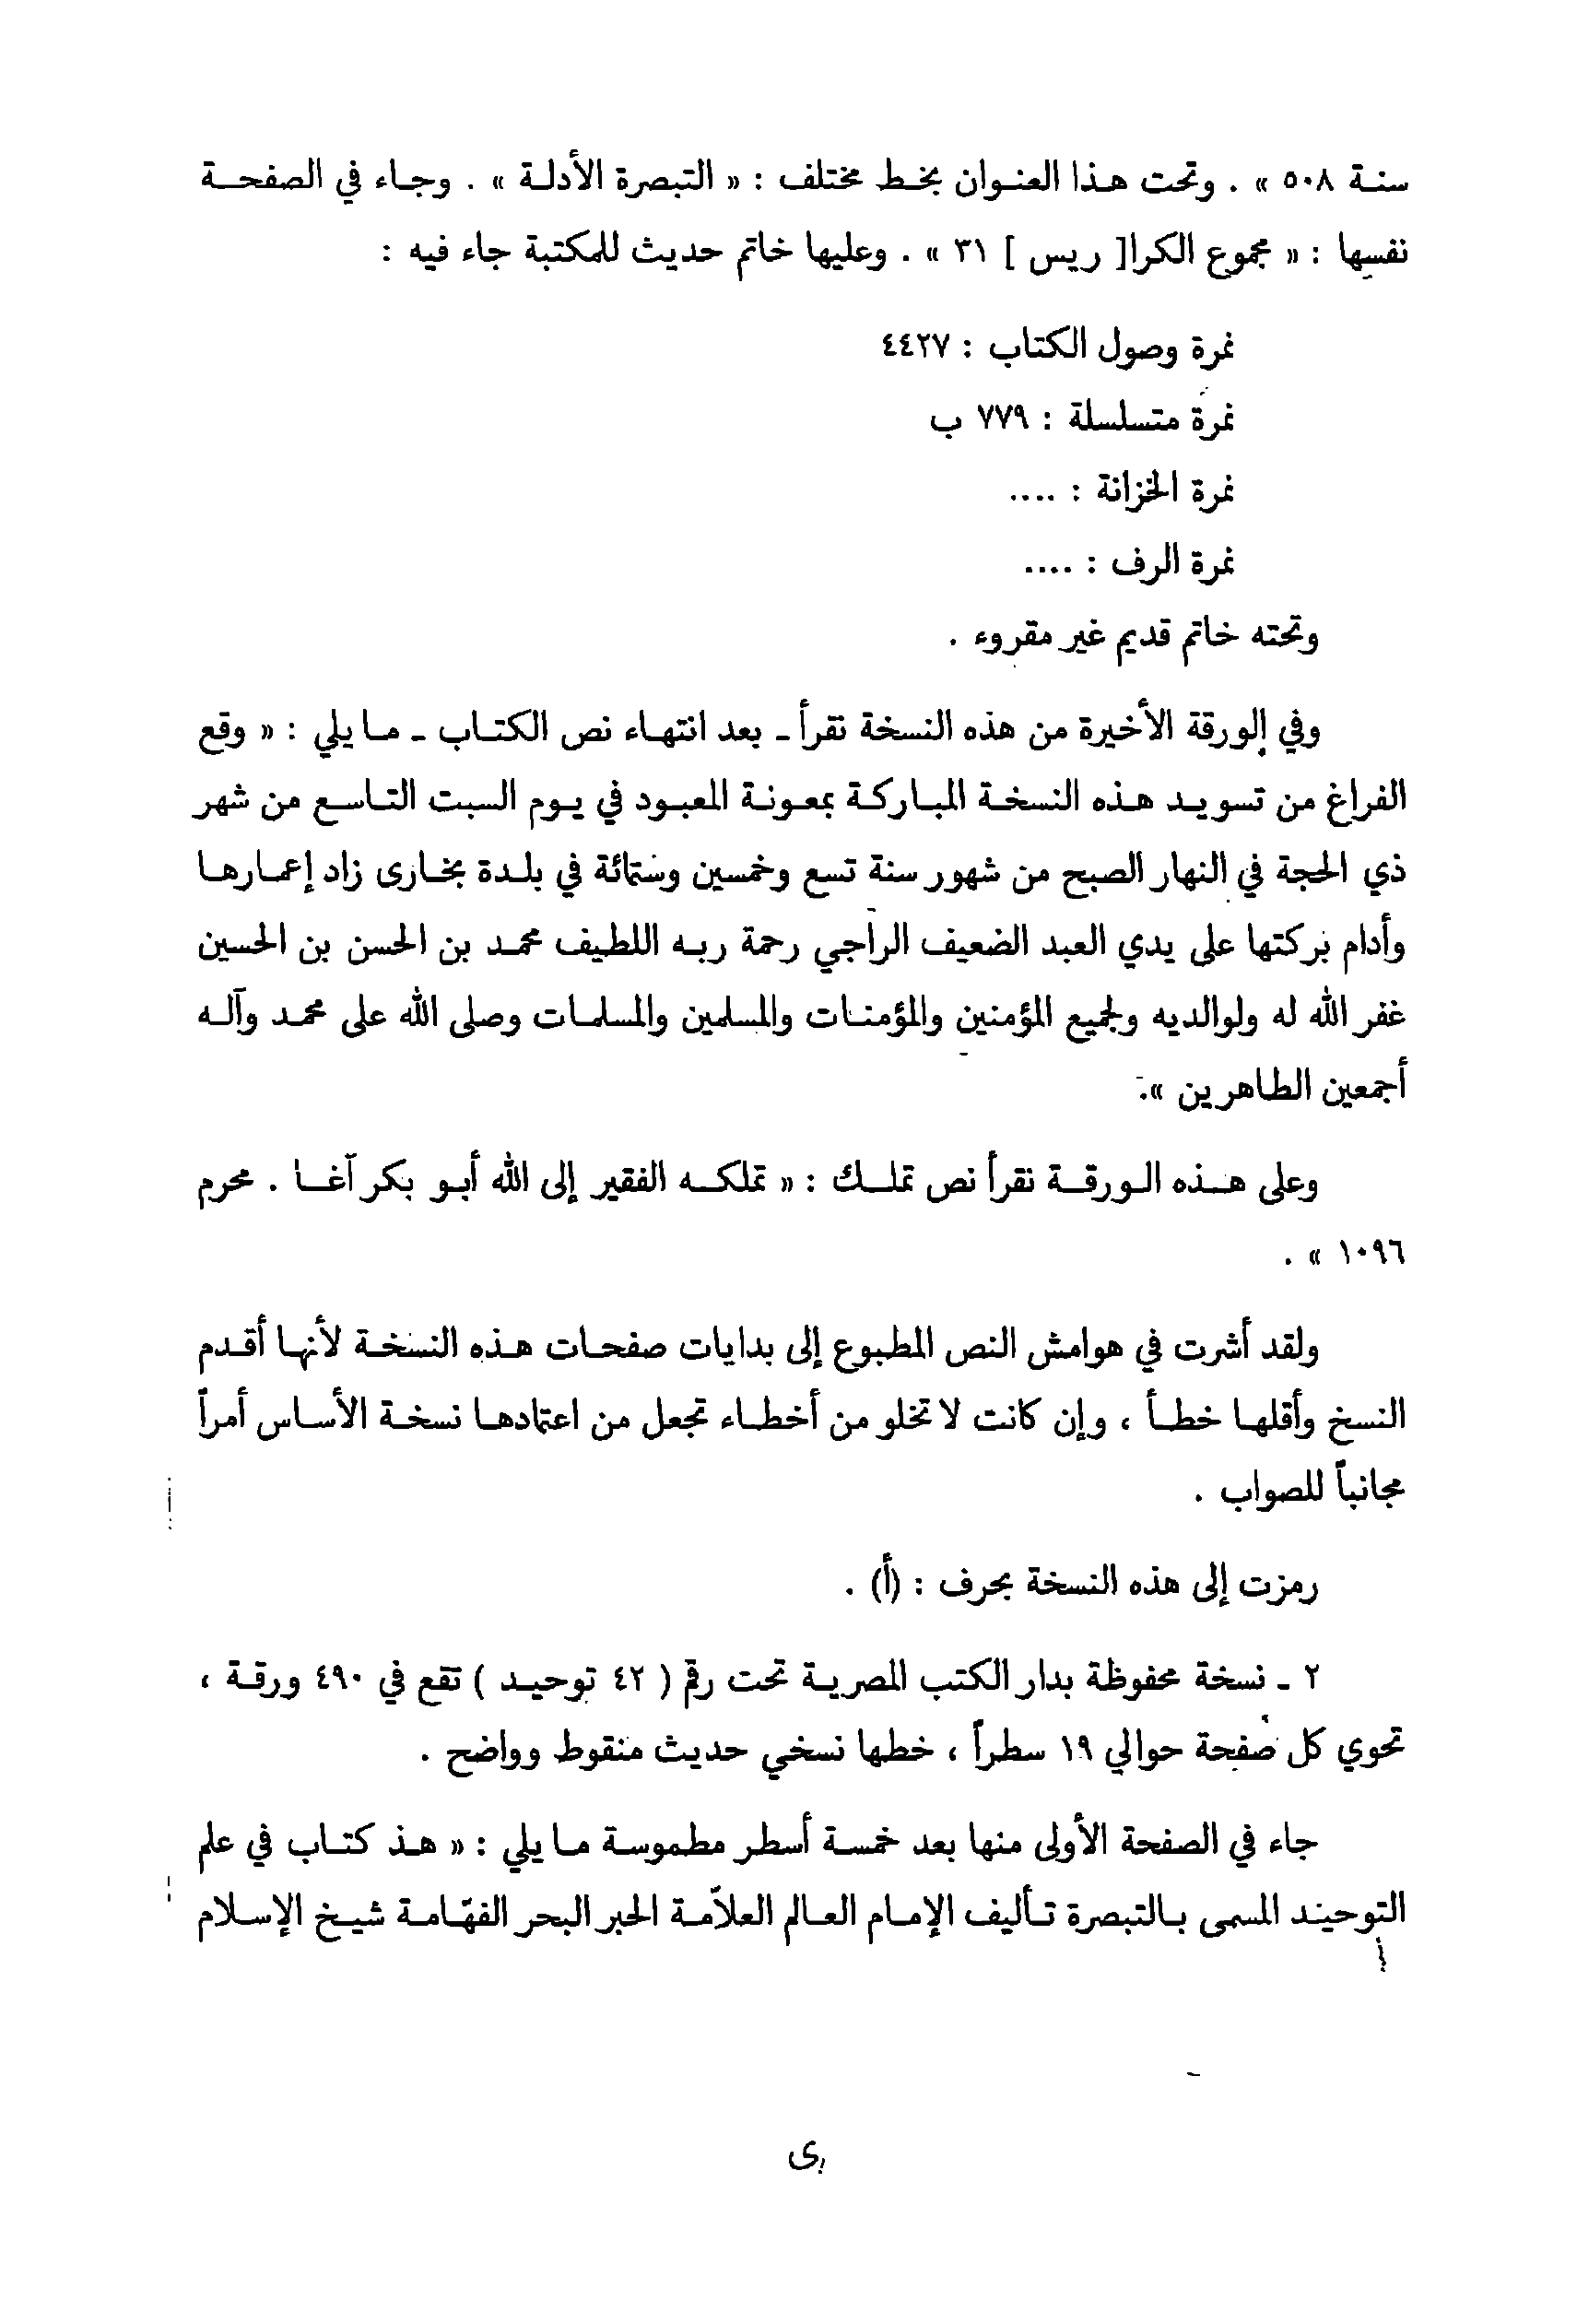 سنة ٥٠٨ » . وتحت هذا العنوان بخط مختلف : « التبصرة الأدلة » . وجاء في الصفحة
نفسها : « مجموع الكرا[ ريس ] ٣١ » . وعليها خاتم حديث للمكتبة جاء فيه :
نمرة وصول الكتاب : ٤٤٢٧
نمرة متسلسلة : ٧٧٩ ب
نمرة الخزانة : ....
نمرة الرف : ....
وتحته خاتم قديم غير مقروء .
وفي الورقة الأخيرة من هذه النسخة نقرأ - بعد انتهاء نص الكتاب - ما يلي : « وقع
الفراغ من تسويد هذه النسخة المباركة بمعونة المعبود في يوم السبت التاسع من شهر
ذي الحجة في النهار الصبح من شهور سنة تسع وخمسين وستمائة في بلدة بخارى زاد إعمارها
وأدام بركتها على يدي العبد الضعيف الراجي رحمة ربه اللطيف محمد بن الحسن بن الحسين
غفر الله له ولوالديه ولجميع المؤمنين والمؤمنات والمسلمين والمسلمات وصلى الله على محمد وآله
أجمعين الطاهرين ».
وعلى هذه الورقة نقرأ نص تملك : « تملكه الفقير إلى الله أبو بكر آغا . محرم
١٠٩٦ » .
ولقد أشرت في هوامش النص المطبوع إلى بدايات صفحات هذه النسخة لأنها أقدم
النسخ وأقلها خطأ ، وإن كانت لا تخلو من أخطاء تجعل من اعتمادها نسخة الأساس أمراً
مجانباً للصواب .
رمزت إلى هذه النسخة بحرف : (أ) .
٢ - نسخة محفوظة بدار الكتب المصرية تحت رقم ( ٤٢ توحيد ) تقع في ٤٩٠ ورقة ،
تحوي كل صفحة حوالي ١٩ سطراً ، خطها نسخي حديث منقوط وواضح .
جاء في الصفحة الأولى منها بعد خمسة أسطر مطموسة ما يلي : « هذ كتاب في علم
التوحيد المسمى بالتبصرة تأليف الإمام العالم العلاّمة الحبر البحر الفهّامة شيخ الإسلام
ى